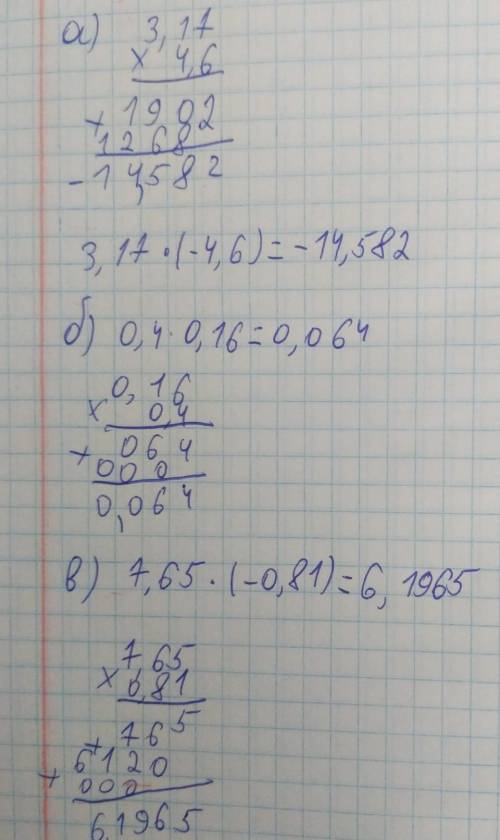 а) 3,17
× 4,6
+ 1902
1268
-14,582
3,17·(-4,6)=-14,582
б) 0,4·0,16=0,064
0,16
× 0,4
+ 064
000
0,064
в) 7,65·(-0,81)=6,1965
7,65
× 0,81
+ 765
6120
+ 000
6,1965